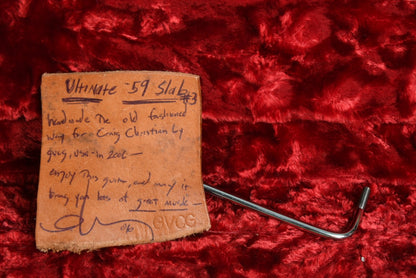 Ultimate '59 Slab
#3
handmade The old fashioned
way for Craig Christian by
gvcg, USA - in 2006 -
enjoy This guitar, and may it
bring you lots of great music -
GVCG